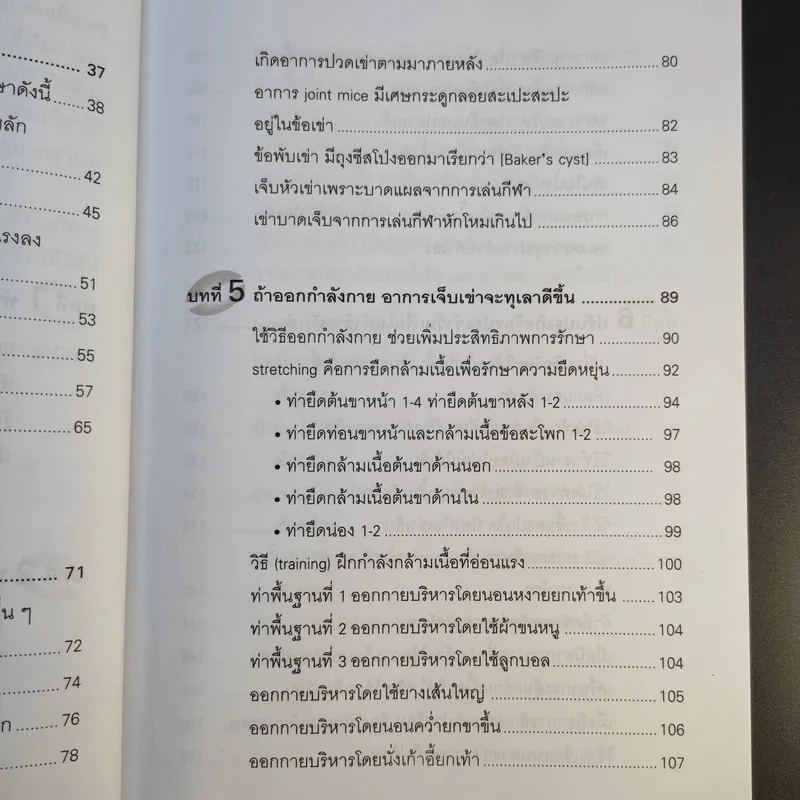 37
ษาดังนี้ ....... 38
ลัก
42
45
แรงลง
51
53
55
57
65
71
ื่น ๆ
72
74
ก ......... 76
78
เกิดอาการปวดเข่าตามมาภายหลัง ........ 80
อาการ joint mice มีเศษกระดูกลอยสะเปะสะปะ
อยู่ในข้อเข่า ........ 82
ข้อพับเข่า มีถุงซีสโป่งออกมาเรียกว่า [Baker's cyst] ........ 83
เจ็บหัวเข่าเพราะบาดแผลจากการเล่นกีฬา ........ 84
เข่าบาดเจ็บจากการเล่นกีฬาหักโหมเกินไป ........ 86
บทที่ 5 ถ้าออกกำลังกาย อาการเจ็บเข่าจะทุเลาดีขึ้น ........ 89
ใช้วิธีออกกำลังกาย ช่วยเพิ่มประสิทธิภาพการรักษา ........ 90
stretching คือการยืดกล้ามเนื้อเพื่อรักษาความยืดหยุ่น ........ 92
• ท่ายืดต้นขาหน้า 1-4 ท่ายืดต้นขาหลัง 1-2 ........ 94
• ท่ายืดท่อนขาหน้าและกล้ามเนื้อข้อสะโพก 1-2 ........ 97
• ท่ายืดกล้ามเนื้อต้นขาด้านนอก ........ 98
• ท่ายืดกล้ามเนื้อต้นขาด้านใน ........ 98
• ท่ายืดน่อง 1-2 ........ 99
วิธี (training) ฝึกกำลังกล้ามเนื้อที่อ่อนแรง ........ 100
ท่าพื้นฐานที่ 1 ออกกายบริหารโดยนอนหงายยกเท้าขึ้น ........ 103
ท่าพื้นฐานที่ 2 ออกกายบริหารโดยใช้ผ้าขนหนู ........ 104
ท่าพื้นฐานที่ 3 ออกกายบริหารโดยใช้ลูกบอล ........ 104
ออกกายบริหารโดยใช้ยางเส้นใหญ่ ........ 105
ออกกายบริหารโดยนอนคว่ำยกขาขึ้น ........ 106
ออกกายบริหารโดยนั่งเก้าอี้ยกเท้า ........ 107